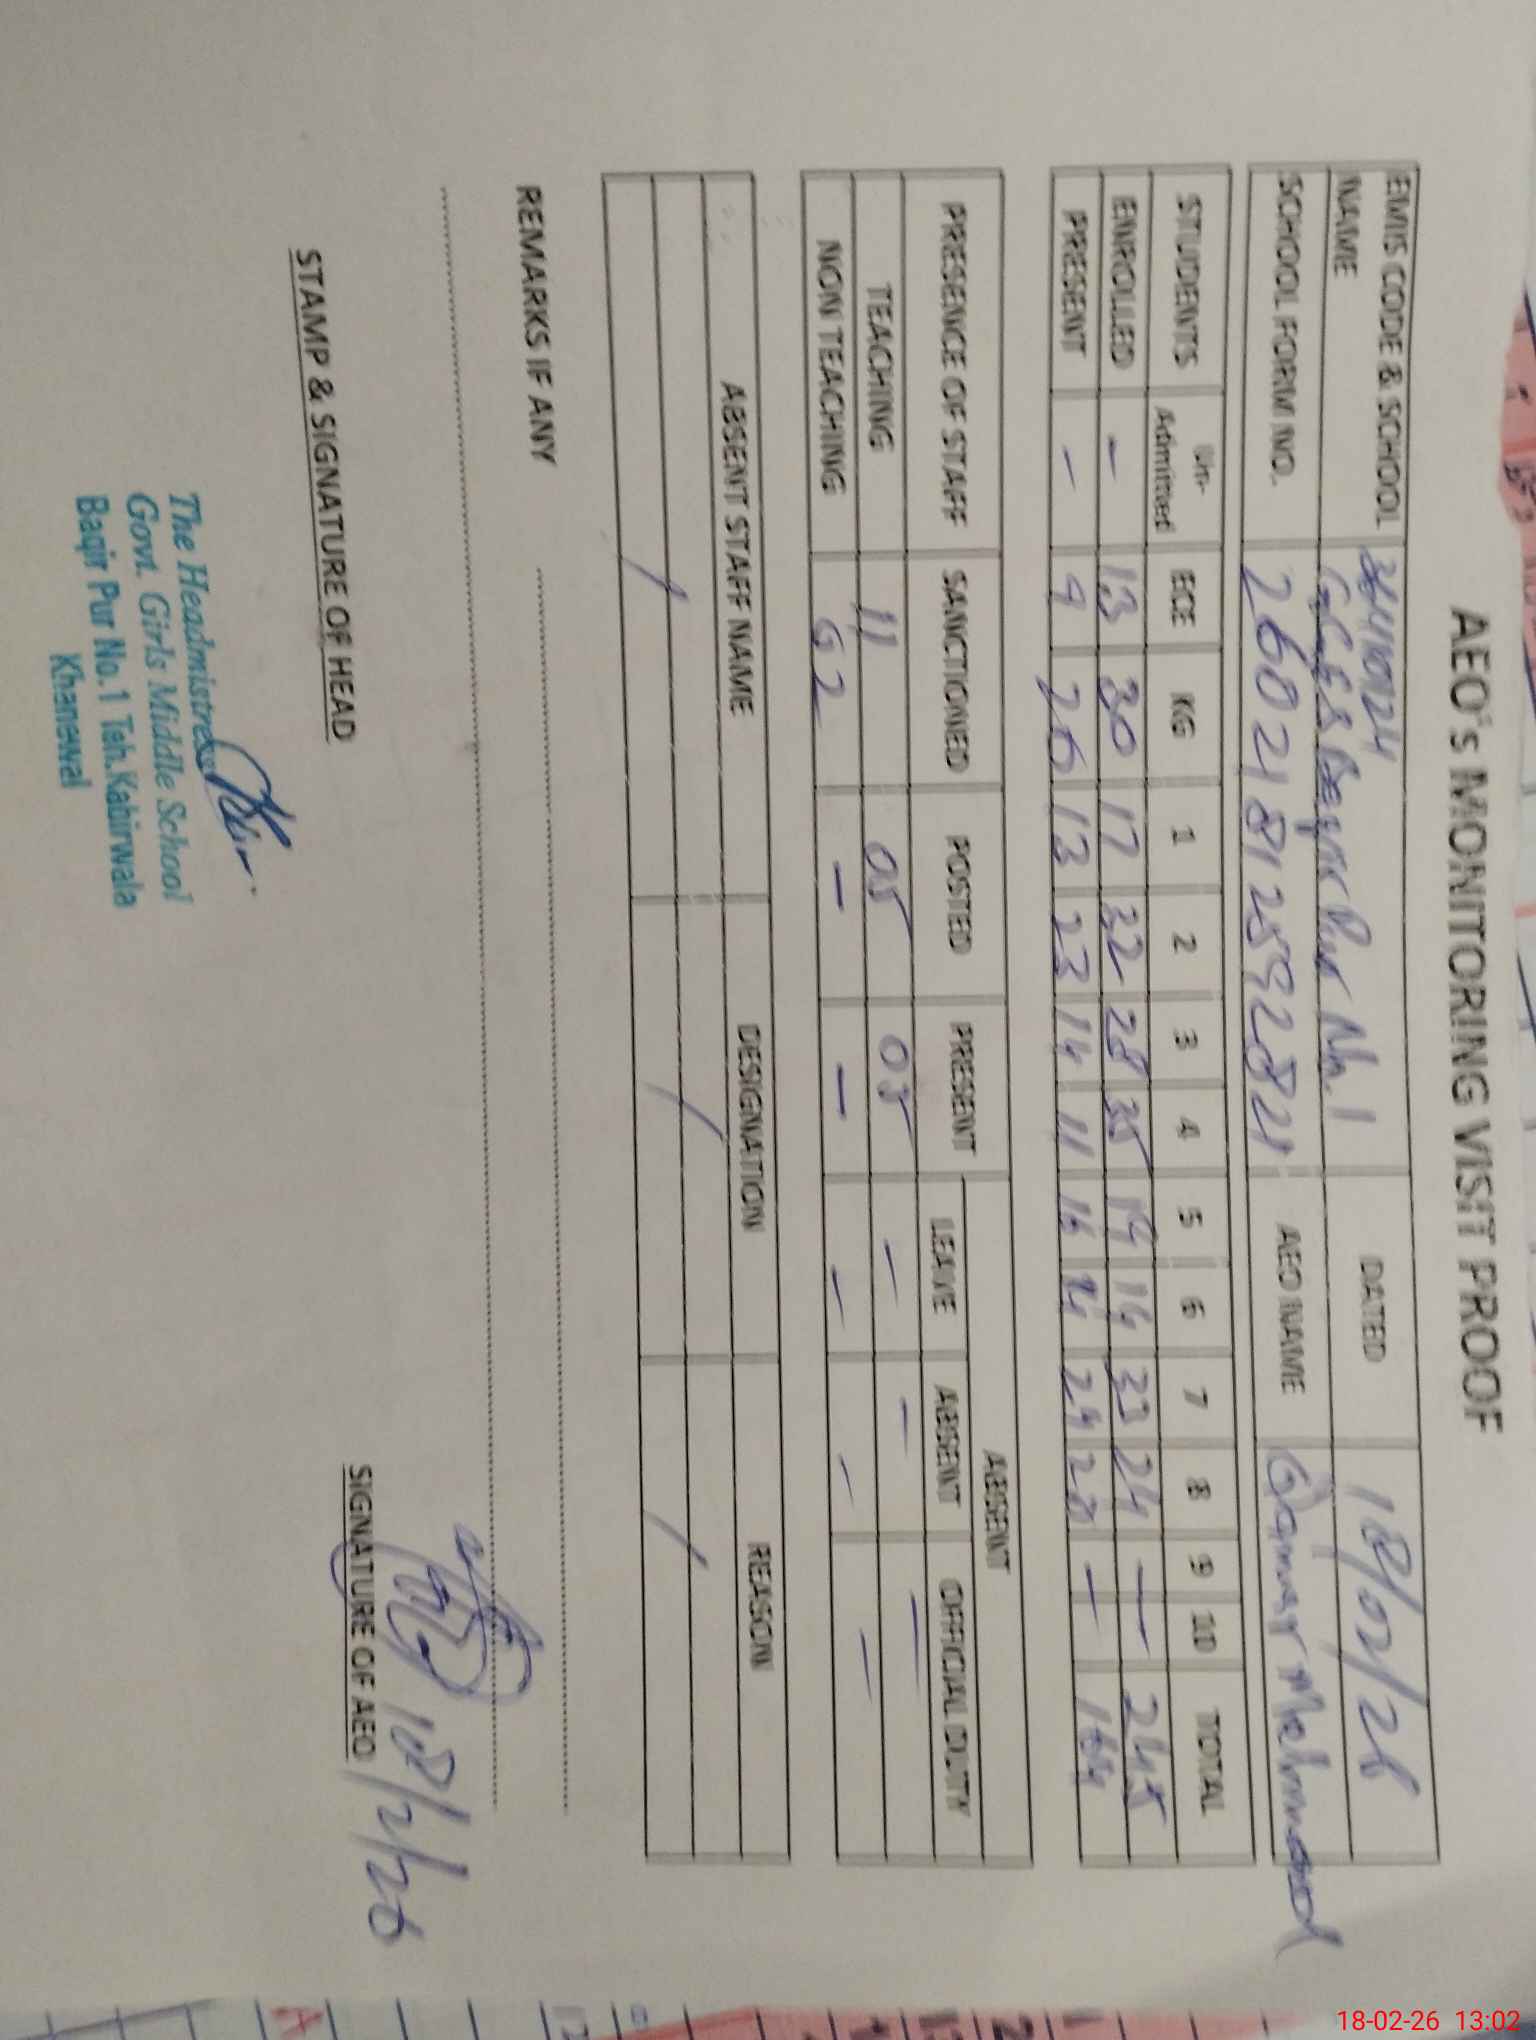 AEO's MONITORING VISIT PROOF
EMIS CODE & SCHOOL NAME DATED 18/02/26
Pur No. 1
SCHOOL FORM NO. AEO NAME Qamar Mehmood
STUDENTS Un-Admitted ECE KG 1 2 3 4 5 6 7 8 9 10 TOTAL
ENROLLED - 13 30 17 32 28 35 19 14 33 24 — 245
PRESENT - 9 20 13 23 14 11 16 14 24 20 —
ABSENT
PRESENCE OF STAFF SANCTIONED POSTED PRESENT LEAVE ABSENT OFFICIAL DUTY
TEACHING 11 05 05 - - -
NON TEACHING - - - - -
ABSENT STAFF NAME DESIGNATION REASON
/ / /
REMARKS IF ANY
STAMP & SIGNATURE OF HEAD
SIGNATURE OF AEO
18/2/26
The Headmistress
Govt. Girls Middle School
Baqir Pur No.1 Teh. Kabirwala
Khanewal
18-02-26 13:02